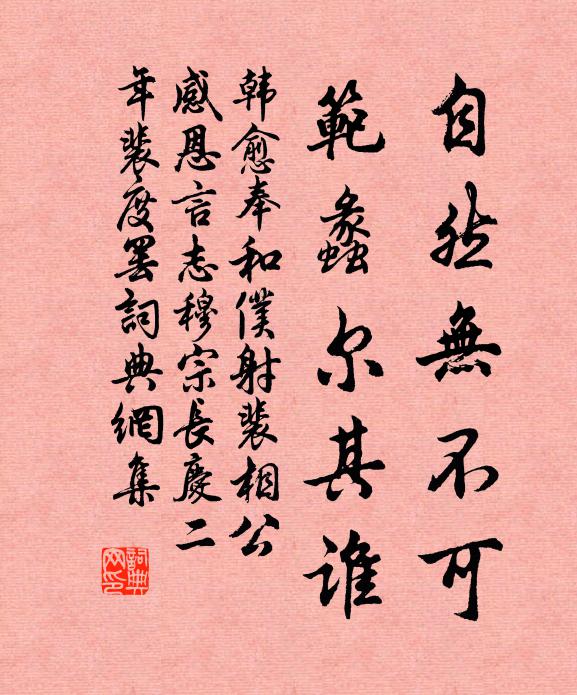 自然無不可
範蠡尔其誰
韩愈奉和僕射裴相公
感恩言志穆宗長慶二
年裴度罢詞典網集
詞典网印